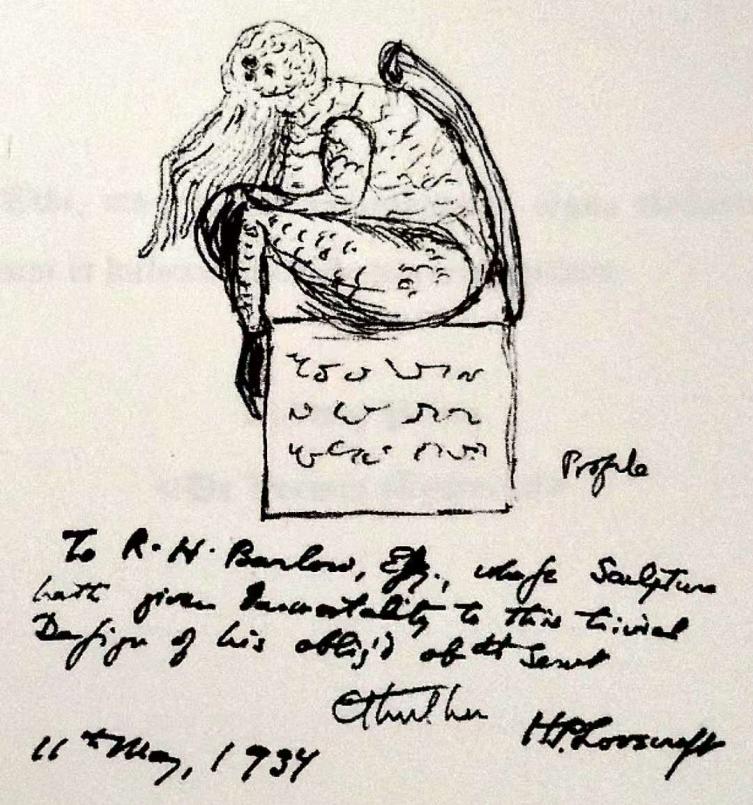 Profile
To R. H. Barlow, Esq., whose Sculpture
hath given Immortality to this trivial
Design of his oblig'd obdt Servt
Cthulhu
H. P. Lovecraft
11th May, 1934